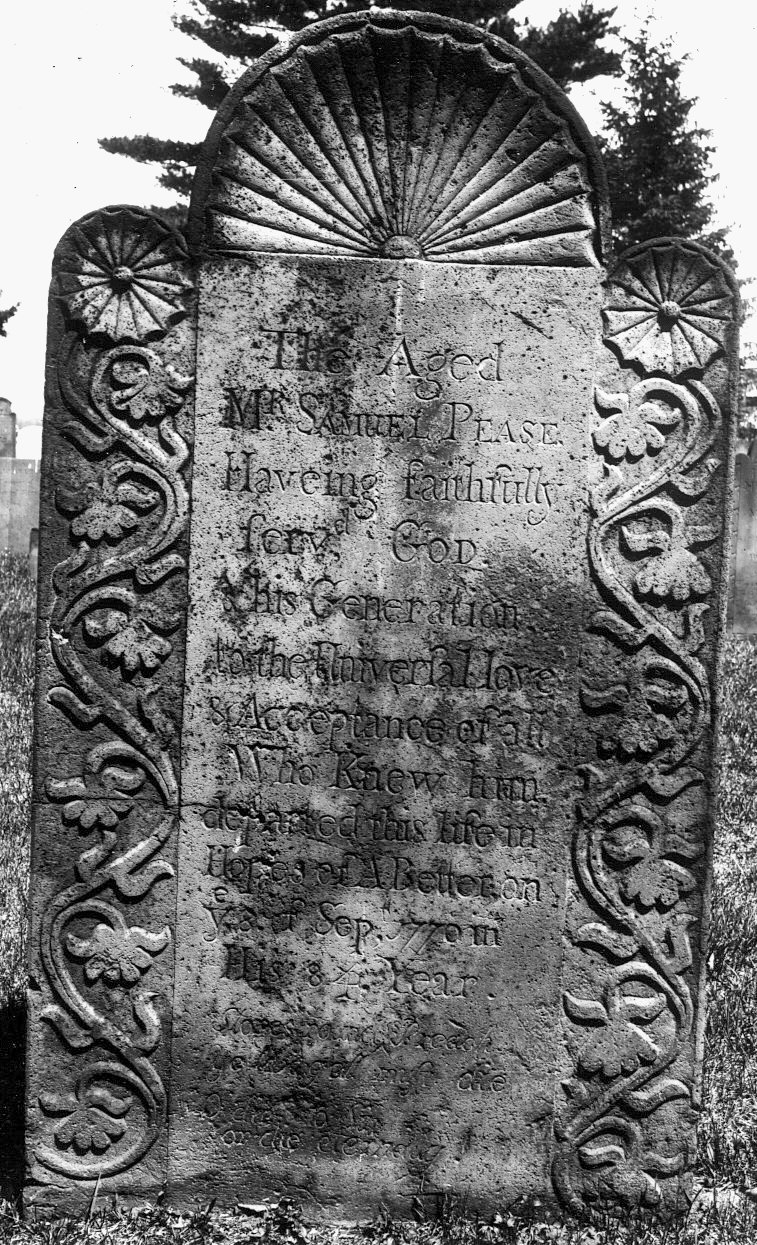 The Aged
Mr Samuel Pease
Haveing faithfully
ſerv,d God
& his Generation
to the Univerſal Love
& Acceptance of all
Who Knew him
departed this life in
Hopes of A Better, on
ye 8: of Sep,t 1770 in
His 84, Year.
all muſt die
or die eternally